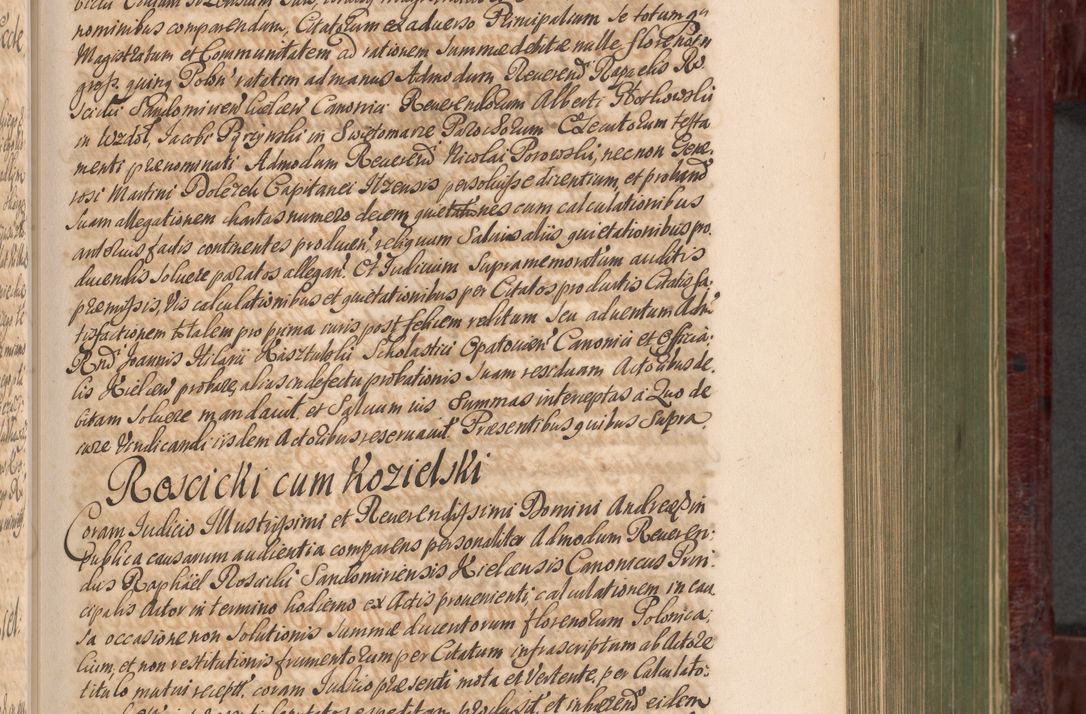 nominibus comparendum, Citatorum ex adverso Principalium se totum
Magistratum et Communitatem ad rationem Summæ debitæ mille florenorū
gross: quinq Polon' ratatem ad manus Admodum Reverend Raphaelis Ro
scicki Sandomirien' Kielcen' Canonici Reverendorum Alberti
in Wzdol, Jacobi Pyrzynski in Swietomarz Parochorum Executorum testa
menti prænominati Admodum Reverend Nicolai Porowski, necnon Gene
rosi Martini Dolezek Capitanei Itzensis persolvisse dicentium, et proband
suam allegationem chartas numero decem, quietationes cum calculationibus
antorius factis continentes producen', reliquum Salvis aliis, quietationibus pro
ducendis solvere paratos allegan'. Et Judicium Supramemoratum auditis
præmissis, Vis calculationibus et quietationibus per Citatos productis Citatis sa
tisfactionem totalem pro prima iuris post felicem reditum seu adventum Adm
Rnd Joannis Hilarii Kasztulski Scholastici Opatovien' Canonici et Officia
lis Kielcen' probare, alias in defectu probationis suam residuam Actoribus de
bitam solvere mandavit, et Salvum ius Summas interceptas a Quo de
iure Vindicandi iisdem Actoribus reservavit. Præsentibus quibus Supra.
Roscicki cum Kozielski
Coram Judicio Illustrissimi et Reverendissimi Domini Andreæ in
publica causarum audientia comparens personaliter Admodum Reveren:
dus Raphäel Roscicki Sandomiriensis Kielcensis Canonicus Prin:
cipalis Actor in termino hodierno ex Actis provenienti, calculationem in cau
sa occasione non solutionis summæ ducentorum florenorum Polonica
lium, et non restitutionis frumentorum per Citatum infrascriptum ab Actore
titulo mutui recept'. coram Judicio præsenti mota et Vertente, per Calculato:
et inhærend' eidem